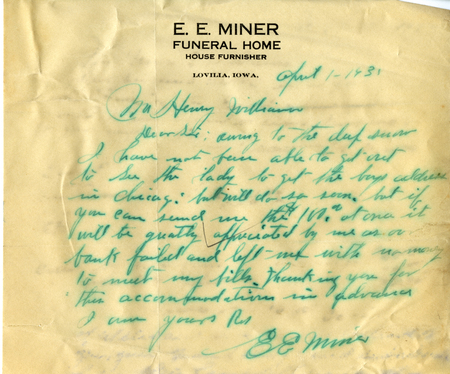 E. E. MINER
FUNERAL HOME
HOUSE FURNISHER
LOVILIA, IOWA.
April 1- 193
Mr Henry William
Dear Sir: owing to the deep snow
I have not been able to get out
to see the lady to get the boys address
in Chicag: but will do so soon. but if
you can send me the at once it
will be greatly appreciated by me as our
bank failed and left me with no money
to meet my bills. Thanking you for
this accommodation in advance
I am yours Rs
E E Miner